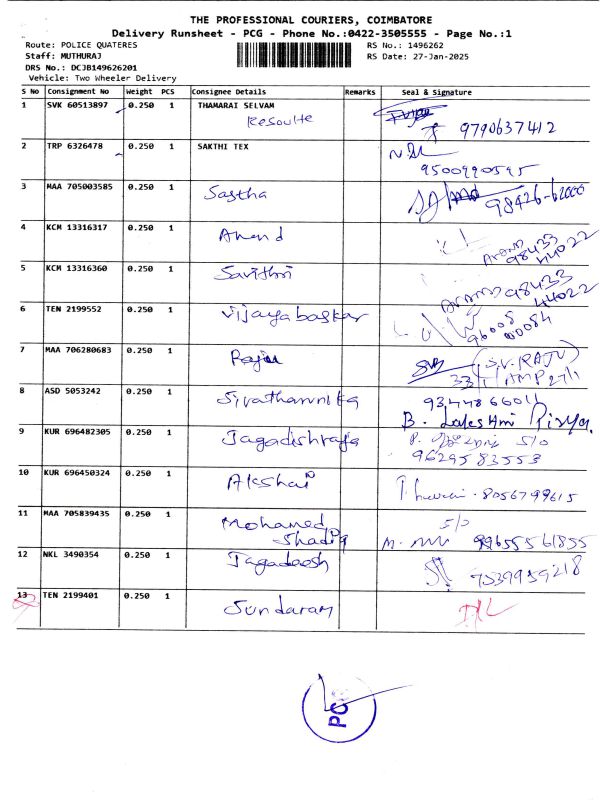 THE PROFESSIONAL COURIERS, COIMBATORE
Delivery Runsheet - PCG - Phone No.:0422-3505555 - Page No.:1
Route: POLICE QUATERES RS No.: 1496262
Staff: MUTHURAJ RS Date: 27-Jan-2025
DRS No.: DCJB149626201
Vehicle: Two Wheeler Delivery
S No Consignment No Weight PCS Consignee Details Remarks Seal & Signature
1 SVK 60513897 0.250 1 THAMARAI SELVAM
9790637412
2 TRP 6326478 0.250 1 SAKTHI TEX
9500990595
3 MAA 705003585 0.250 1 Sastha 98426-62000
4 KCM 13316317 0.250 1 Anand
98433
44022
5 KCM 13316360 0.250 1 Savithri
98433
44022
6 TEN 2199552 0.250 1 Vijayabaskar
96008
00084
7 MAA 706280683 0.250 1 Raju (S.V. RAJU)
8 ASD 5053242 0.250 1 9344866011
B. Lakshmi Priya.
9 KUR 696482305 0.250 1 Jagadishraja S/o
9629583553
10 KUR 696450324 0.250 1 Akshai 8056799615
11 MAA 705839435 0.250 1 Mohamed S/o
Shadiq 99655561855
12 NKL 3490354 0.250 1 Jagadeesh 7539959218
13 TEN 2199401 0.250 1 Sundaram
PCG